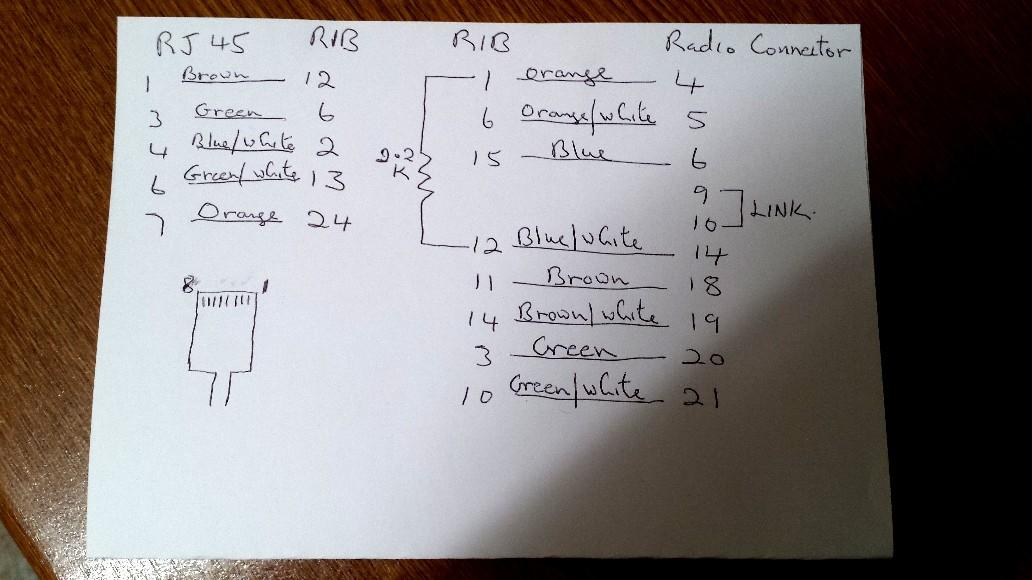 RJ 45 RIB RIB Radio Connector
1 Brown 12 1 orange 4
3 Green 6 6 Orange/white 5
4 Blue/white 2 2.2 K 15 Blue 6
6 Green/white 13 9
7 Orange 24 10 LINK.
12 Blue/white 14
8 1 11 Brown 18
14 Brown/white 19
3 Green 20
10 Green/white 21